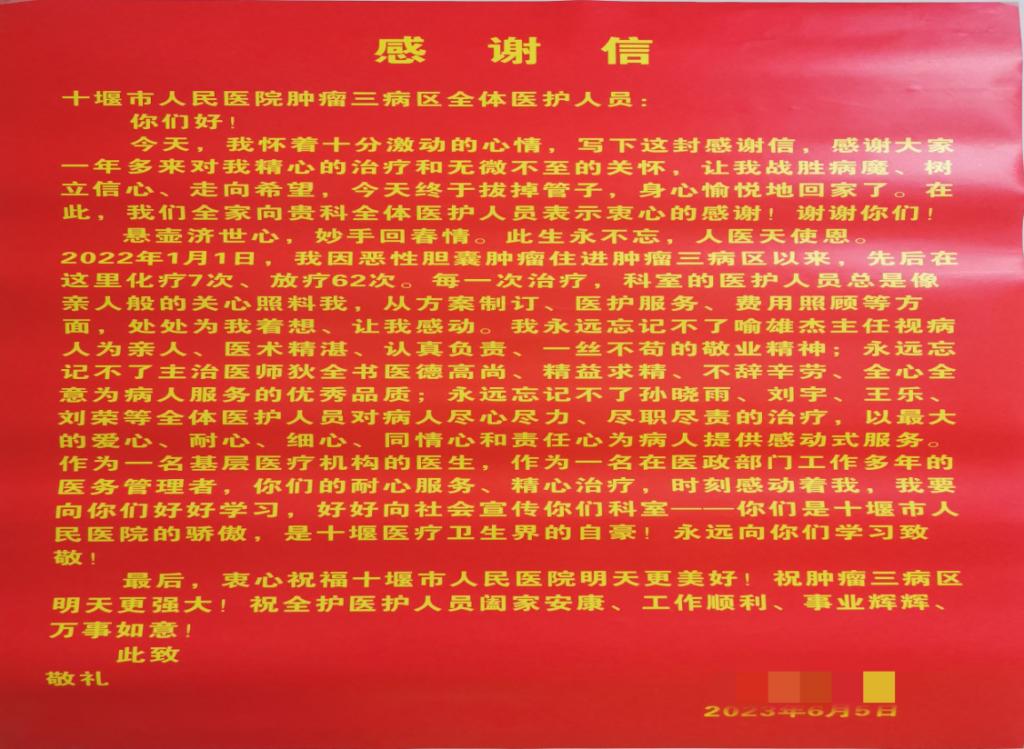 感谢信
十堰市人民医院肿瘤三病区全体医护人员：
你们好！
今天，我怀着十分激动的心情，写下这封感谢信，感谢大家
一年多来对我精心的治疗和无微不至的关怀，让我战胜病魔、树
立信心、走向希望，今天终于拔掉管子，身心愉悦地回家了。在
此，我们全家向贵科全体医护人员表示衷心的感谢！谢谢你们！
悬壶济世心，妙手回春情。此生永不忘，人医天使恩。
2022年1月1日，我因恶性胆囊肿瘤住进肿瘤三病区以来，先后在
这里化疗7次、放疗62次。每一次治疗，科室的医护人员总是像
亲人般的关心照料我，从方案制订、医护服务、费用照顾等方
面，处处为我着想、让我感动。我永远忘记不了喻雄杰主任视病
人为亲人、医术精湛、认真负责、一丝不苟的敬业精神；永远忘
记不了主治医师狄全书医德高尚、精益求精、不辞辛劳、全心全
意为病人服务的优秀品质；永远忘记不了孙晓雨、刘宇、王乐、
刘荣等全体医护人员对病人尽心尽力、尽职尽责的治疗，以最大
的爱心、耐心、细心、同情心和责任心为病人提供感动式服务。
作为一名基层医疗机构的医生，作为一名在医政部门工作多年的
医务管理者，你们的耐心服务、精心治疗，时刻感动着我，我要
向你们好好学习，好好向社会宣传你们科室——你们是十堰市人
民医院的骄傲，是十堰医疗卫生界的自豪！永远向你们学习致
敬！
最后，衷心祝福十堰市人民医院明天更美好！祝肿瘤三病区
明天更强大！祝全护医护人员阖家安康、工作顺利、事业辉辉、
万事如意！
此致
敬礼
2023年6月5日